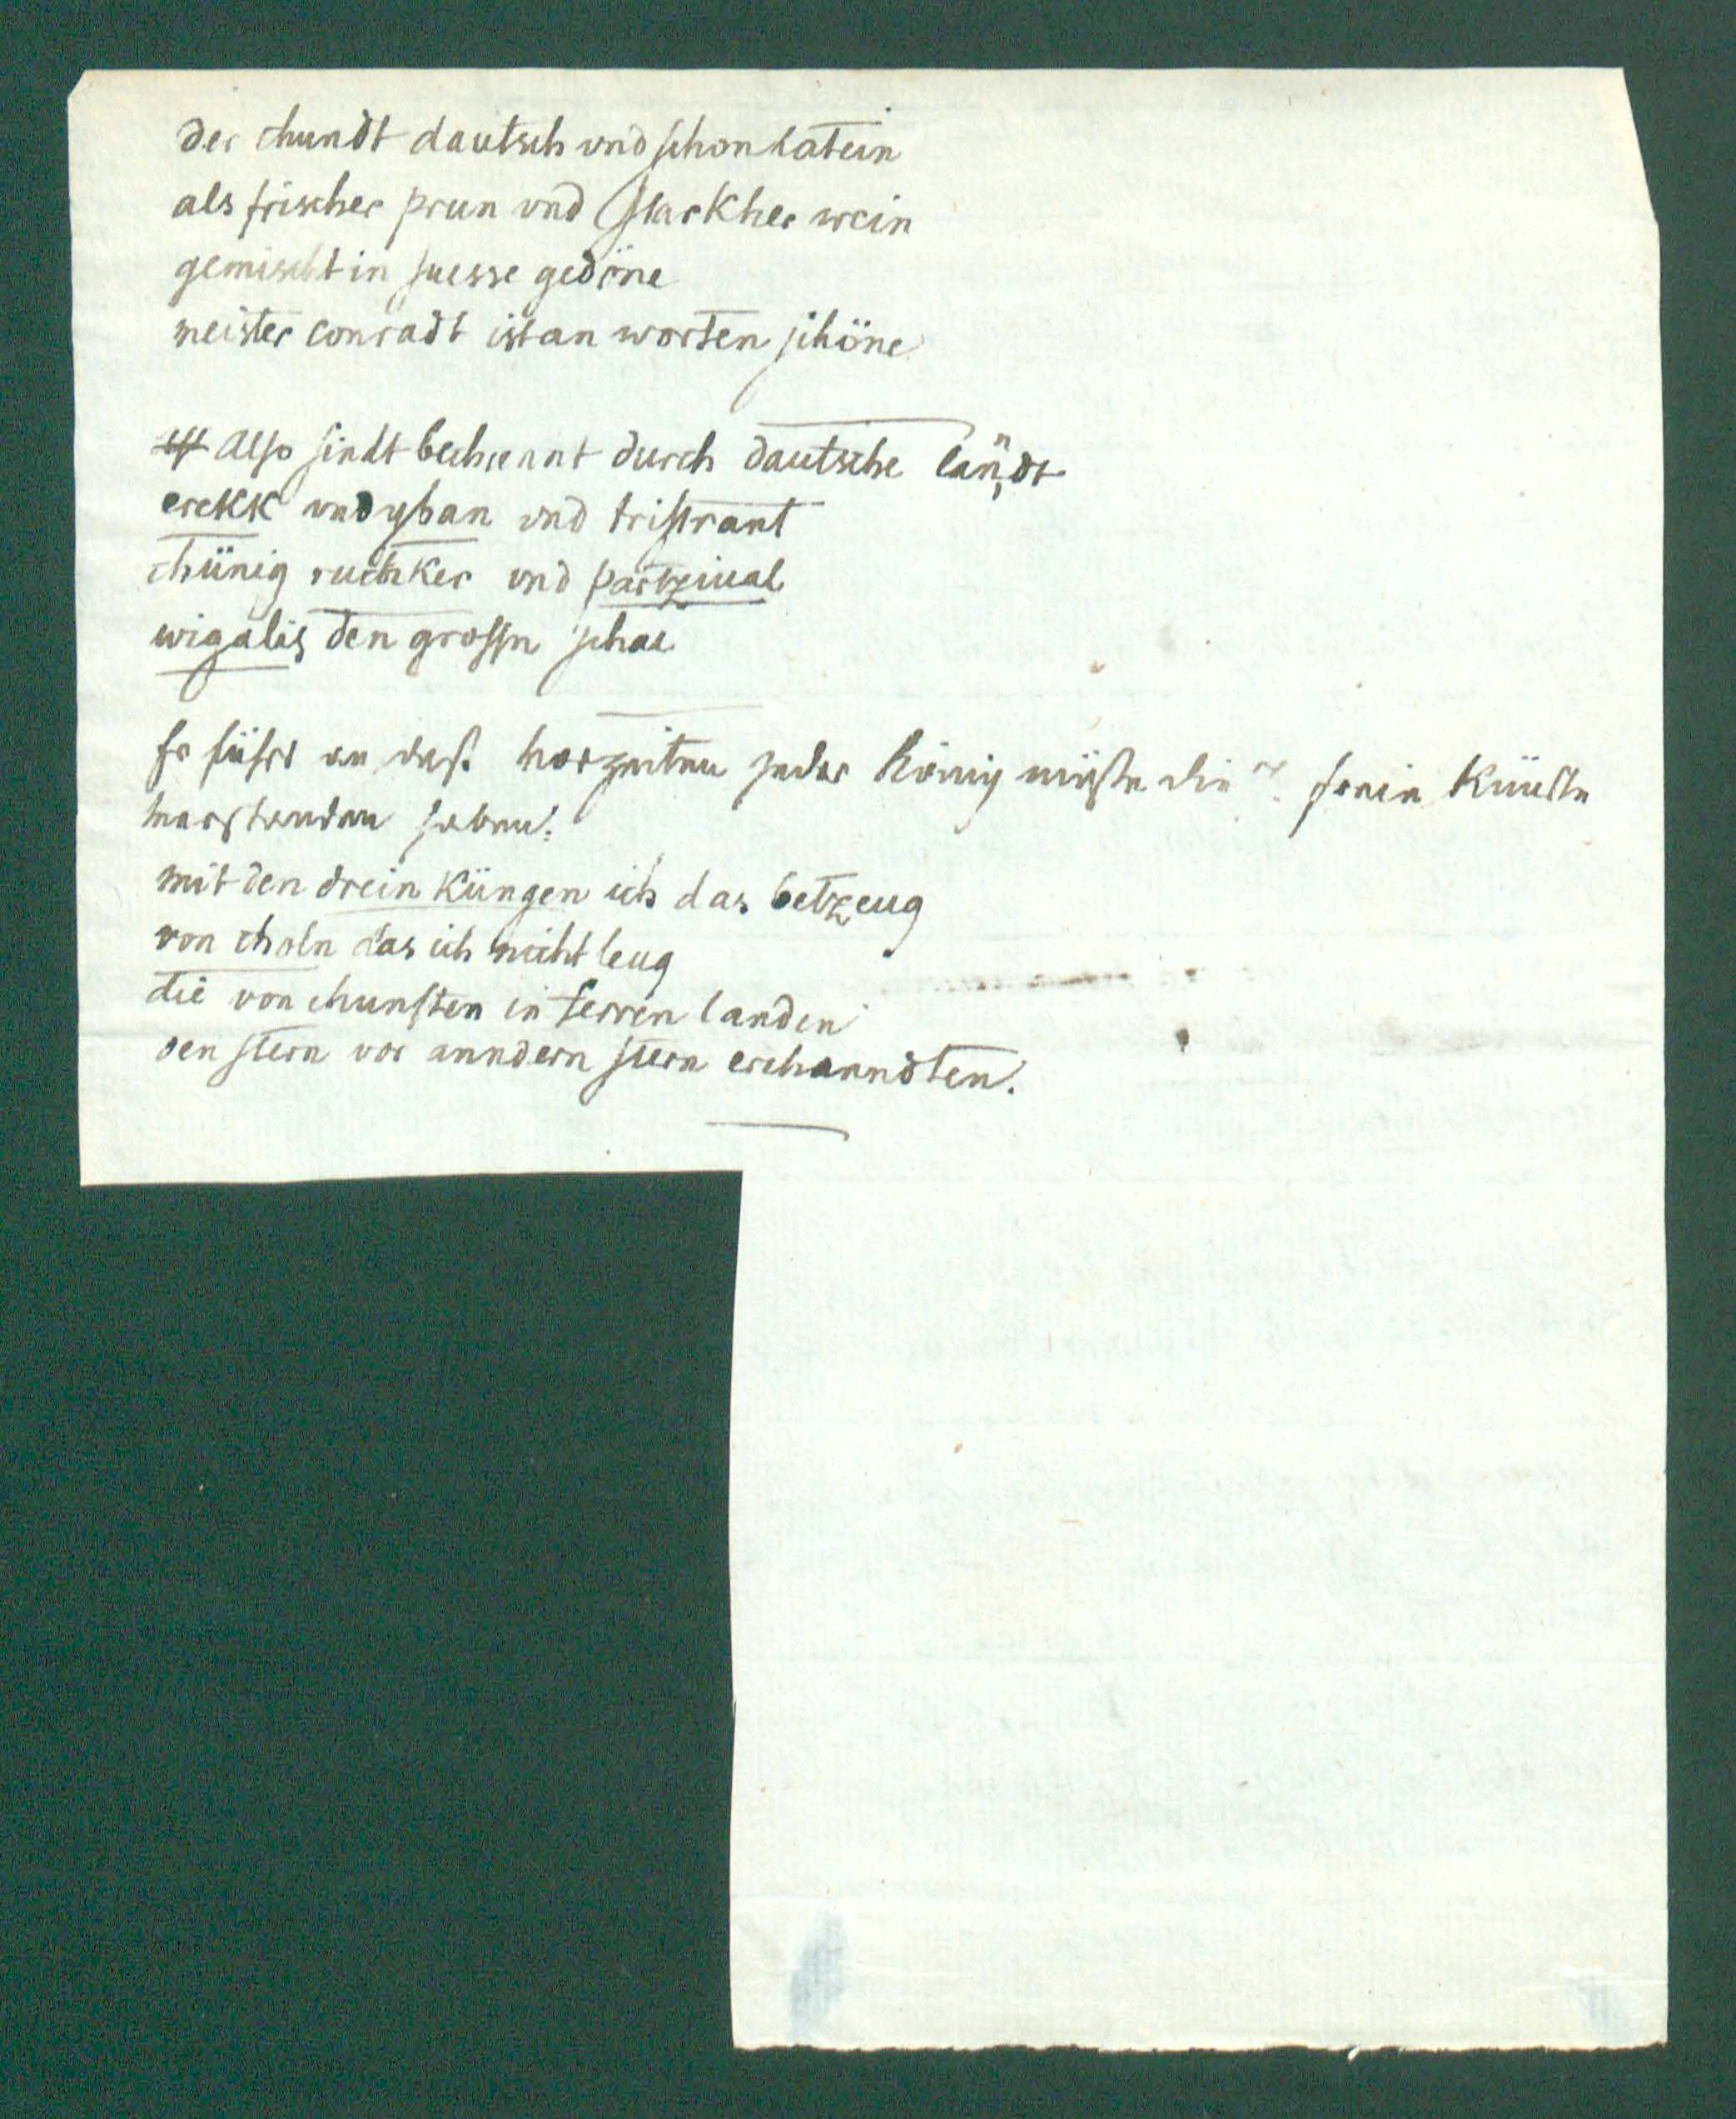 der chundt dautsch vnd schon latein
als frischer prun vnd starkher wein
gemischt in suesse gedöne
meister conradt ist an worten schöne
Also sindt bechennt durch dautsche lanndt
erekk vnd yban vnd tristrant
chünig ruthker vnd partziual
wigalis den grossn schal
Er führt an daß vorzeiten jeder König mußte die 7 freien Künste
verstanden haben:
mit den drein Küngen ich das betzeug
von choln das ich nicht leug
die von chunsten in ferren landen
den stern vor anndern stern erchanndten.